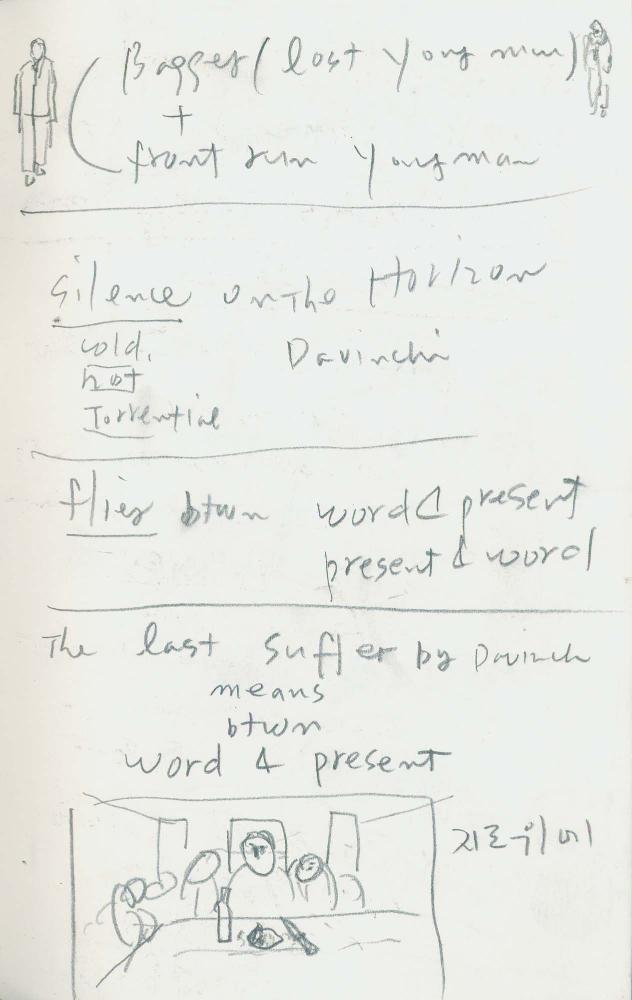 Bagger (lost young man)
+
front run young man
Silence on The Horizon
cold,
Davinchi
hot
Torrential
flies btwn word & present
present & word
The last suffer by Davinch
means
btwn
word & present
지로위에